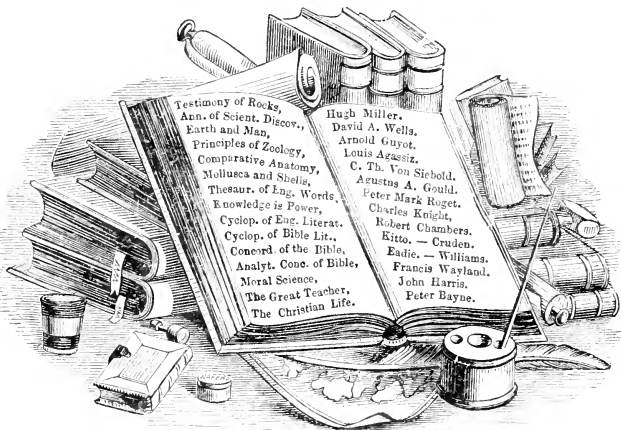 Testimony of Rocks,
Ann. of Scient. Discov.,
Earth and Man,
Principles of Zoology,
Comparative Anatomy,
Mollusca and Shells,
Thesaur. of Eng. Words,
Knowledge is Power,
Cyclop. of Eng. Literat.
Cyclop. of Bible Lit.,
Concord. of the Bible,
Analyt. Conc. of Bible,
Moral Science,
The Great Teacher,
The Christian Life.
Hugh Miller.
David A. Wells.
Arnold Guyot.
Louis Agassiz.
C. Th. Von Siebold.
Agustus A. Gould.
Peter Mark Roget.
Charles Knight,
Robert Chambers.
Kitto. — Cruden.
Eadie. — Williams.
Francis Wayland.
John Harris.
Peter Bayne.